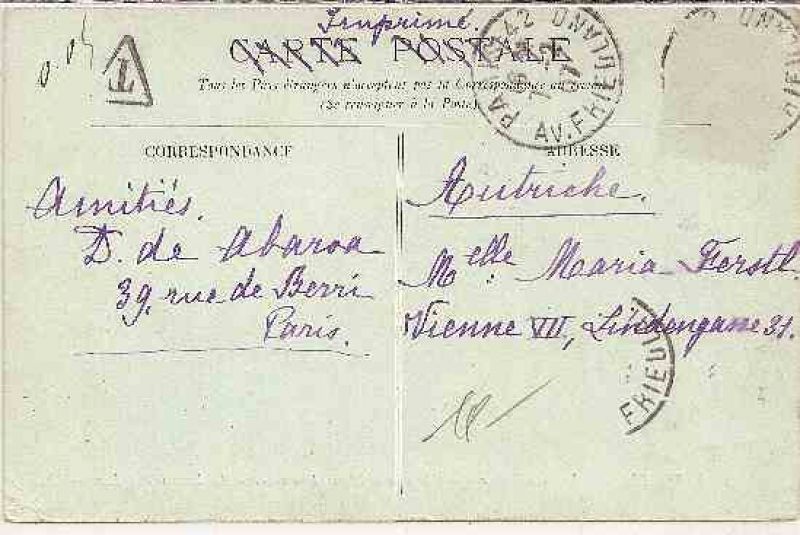 Imprimé
0.05
T
CARTE POSTALE
Tous les Pays étrangers n'acceptent pas la Correspondance au
(Se renseigner à la Poste)
PARIS 42
AV. FRIEDLAND
CORRESPONDANCE
ADRESSE
Amitiés.
D. de Abaroa
39, rue de Berri
Paris.
Autriche.
Melle Maria Ferstl.
Vienne VII, Lindengasse 31.
FRIEDL